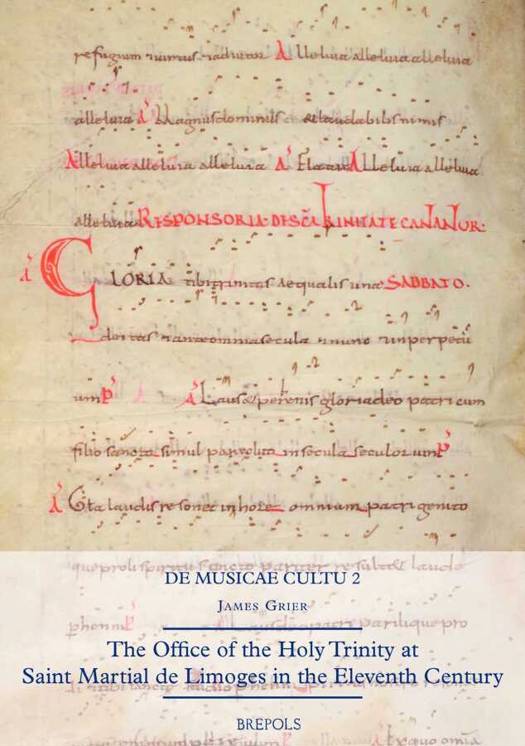 refugium Alleluia alleluia alleluia
alleluia A Magnus dominus & laudabilis nimis
Alleluia alleluia alleluia A Alleluia alleluia
alleluia RESPONSORIA DE SCA TRINITATE CANANTUR:
A GLORIA tibi trinitas aequalis una SABBATO.
deitas & ante omnia secula & nunc & inperpetu
um P A Laus & perhenis gloria deo patri cum
filio sancto simul paraclito in secula seculorum P
A laudis resonet in omnium patri genito
queproli spiritu sancto pariter resultet laude
phenni P patri parilique pro
DE MUSICAE CULTU 2
JAMES GRIER
The Office of the Holy Trinity at
Saint Martial de Limoges in the Eleventh Century
BREPOLS